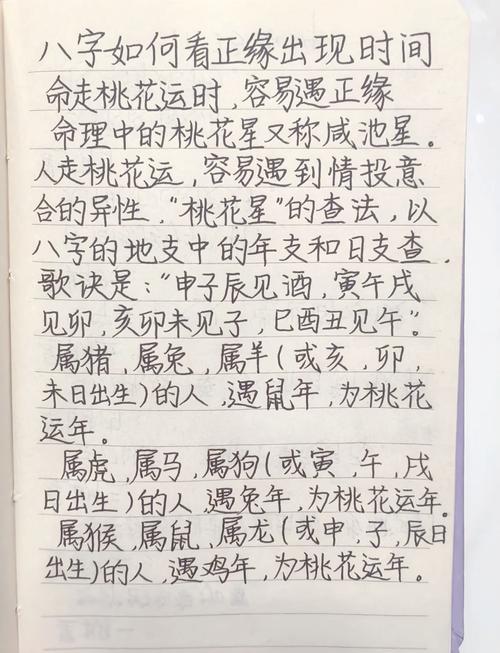 八字如何看正缘出现时间
命走桃花运时,容易遇正缘
命理中的桃花星又称咸池星。
人走桃花运,容易遇到情投意
合的异性,“桃花星”的查法,以
八字的地支中的年支和日支查.
歌诀是:“申子辰见酒,寅午戌
见卯,亥卯未见子,巳酉丑见午”。
属猪,属兔,属羊(或亥,卯,
未日出生)的人,遇鼠年,为桃花
运年。
属虎,属马,属狗(或寅,午,戌
日出生)的人,遇兔年,为桃花运年。
属猴,属鼠,属龙(或申,子,辰日
出生)的人,遇鸡年,为桃花运年。